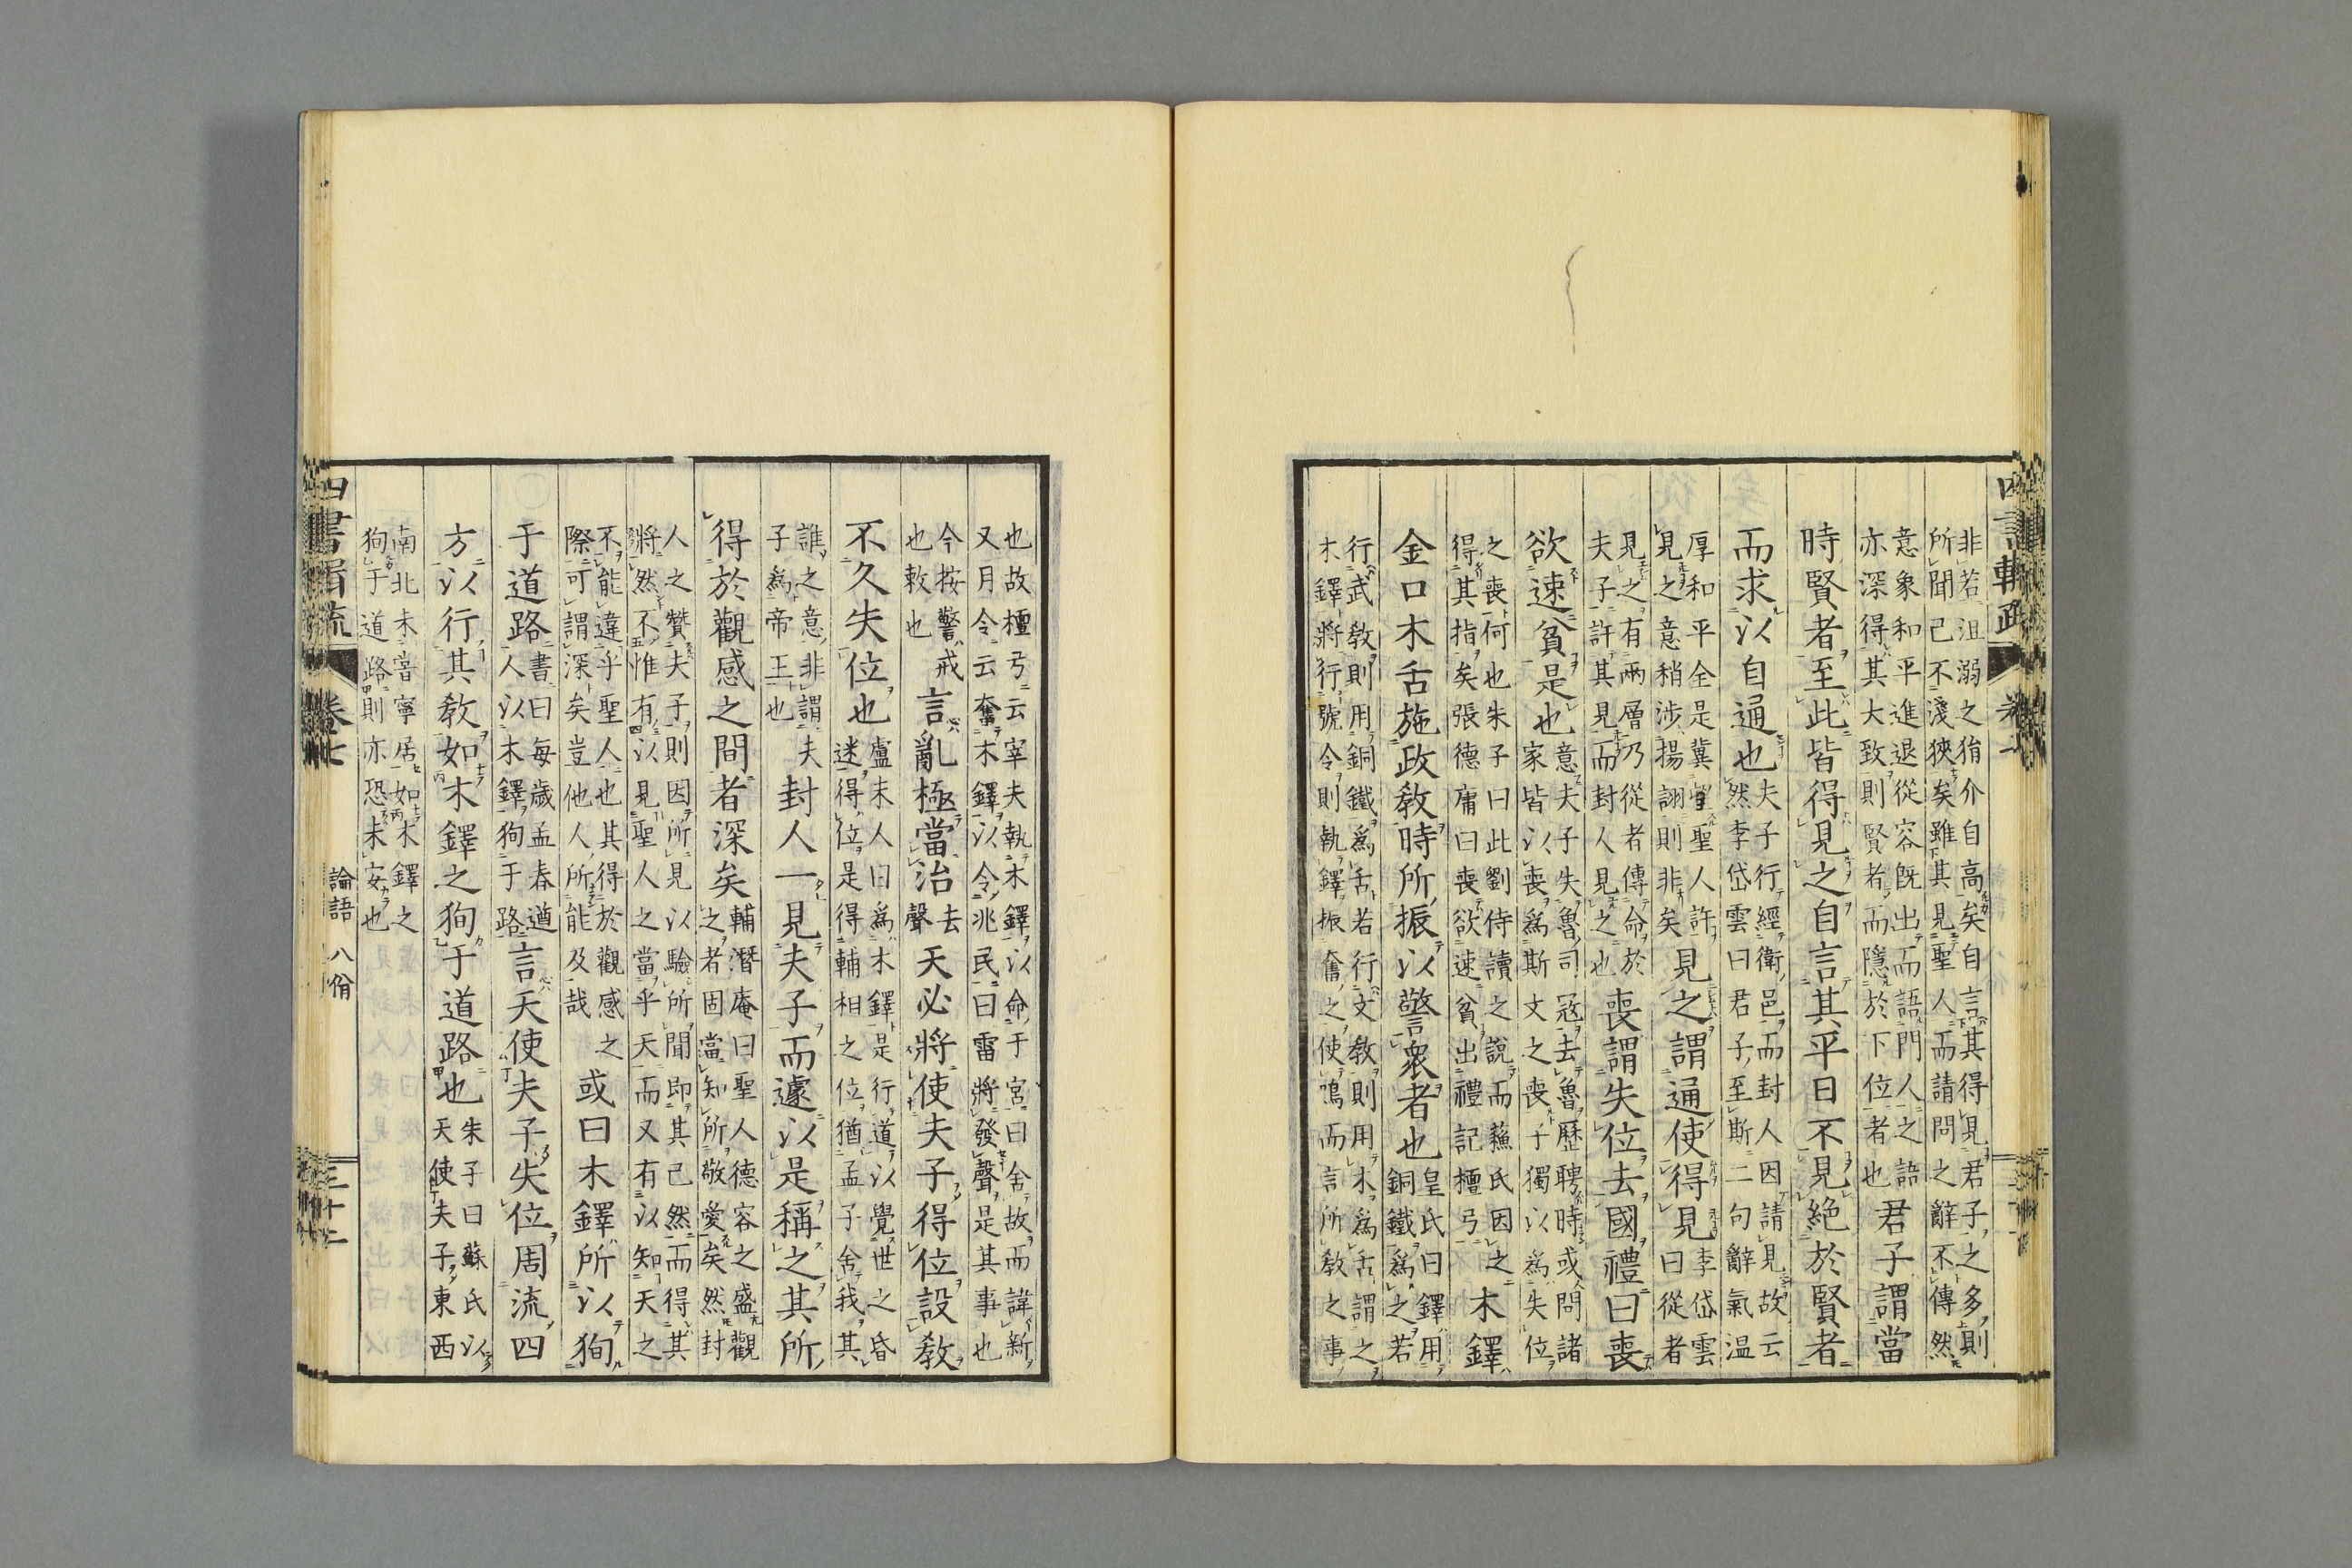 非若沮溺之狷介自高矣自言其得見君子之多則
所聞己不淺狹矣雖其見聖人而請問之辭不傳然
意象和平進退從容既出而語門人之語
亦深得其大致則賢者而隱於下位者也
君子謂當
時賢者至此皆得見之自言其平日不見絶於賢者
而求以自通也
夫子行經衛邑而封人因請見故云
然李岱雲曰君子至斯二句辭氣温
厚和平全是冀望聖人許
見之意稍涉揚詡則非矣
見之謂通使得見
李岱雲
曰從者
見之有兩層乃從者傳命於
夫子許其見而封人見之也
喪謂失位去國禮曰喪
欲速貧是也
意夫子失魯司冦去魯歷聘時或問諸
家皆以喪爲斯文之喪子獨以爲失位
之喪何也朱子曰此劉侍讀之説而蘓氏因之
得其指矣張德庸曰喪欲速貧出禮記檀弓
木鐸
金口木舌施政敎時所振以警衆者也
皇氏曰鐸用
銅鐵爲之若
行武敎則用銅鐵爲舌若行文敎則用木爲舌謂之
木鐸將行號令則執鐸振奮之使鳴而言所敎之事
也故檀弓云宰夫執木鐸以命于宮曰舍故而諱新
又月令云奮木鐸以令兆民曰雷將發聲是其事也
今按警戒
也敕也
言亂極當治
去
聲
天必將使夫子得位設敎
不久失位也
盧未人曰爲木鐸是行道以覺世之昏
迷得位是得輔相之位猶孟子舍我其
誰之意非謂夫
子爲帝王也
封人一見夫子而遽以是稱之其所
得於觀感之間者深矣
輔潛庵曰聖人德容之盛觀
之者固當知所敬愛矣然封
人之贊夫子則因所見以驗所聞即其已然而得其
將然不惟有以見聖人之當乎天而又有以知天之
不能違乎聖人也其得於觀感之
際可謂深矣豈他人所能及哉
或曰木鐸所以狥
于道路
書曰毎歳孟春遒
人以木鐸狥于路
言天使夫子失位周流四
方以行其敎如木鐸之狥于道路也
朱子曰蘇氏以
天使夫子東西
南北未嘗寧居如木鐸之
狥于道路則亦恐未安也
四書輯疏
卷七
論語 八佾
三十二